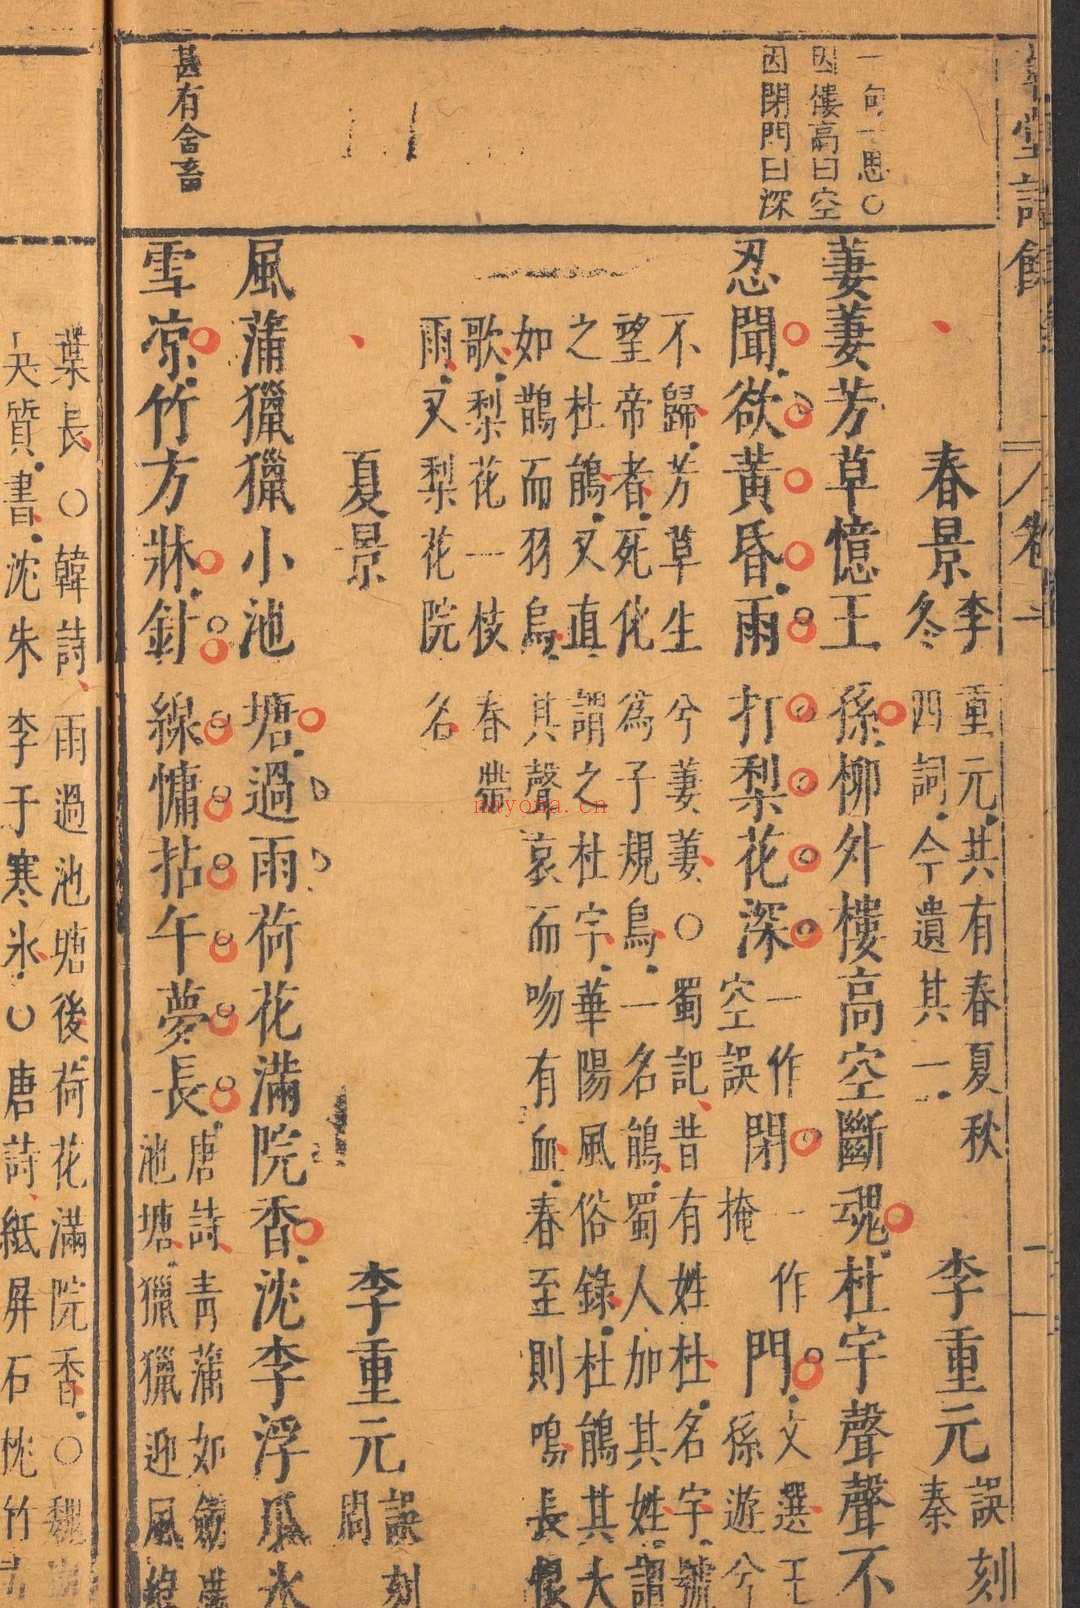 一句一思〇
因樓高曰空
因閉門曰深
春景李重元共有春夏秋冬四詞今遺其一 李重元誤刻秦
萋萋芳草憶王孫柳外樓高空斷魂杜宇聲聲不
忍聞欲黃昏雨打梨花深一作空誤閉一作掩門文選王孫遊兮
不歸芳草生兮萋萋〇蜀記昔有姓杜名宇號
望帝者死化為子規鳥一名鵑蜀人加其姓謂
之杜鵑又直謂之杜宇華陽風俗錄杜鵑其大
如鵲而羽烏其聲哀而吻有血春至則鳴長恨
歌梨花一枝春帶
雨又梨花院名
夏景 李重元誤刻周
風蒲獵獵小池塘過雨荷花滿院香沈李浮瓜氷
甚有含畜
雪凉竹方牀針線慵拈午夢長唐詩青蒲如劒
池塘獵獵迎風
葉長〇韓詩雨過池塘後荷花滿院香〇魏
質書沈朱李于寒氷〇唐詩紙屏石枕竹
nayona.cn